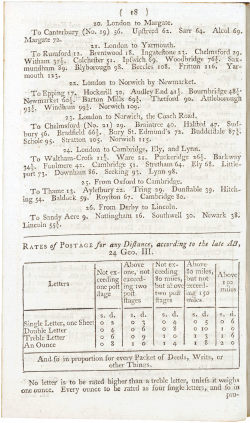 ( 18 )
20. London to Margate.
To Canterbury (No. 19) 56. Upstreet 62. Sarr 64. Alcol 69.
Margate 72.
21. London to Yarmouth.
To Rumford 12. Brentwood 18. Ingatestone 23. Chelmsford 29.
Witham 37½. Colchester 51. Ipswich 69. Woodbridge 76½. Sax-
mundham 89. Blyborough 98. Beccles 108. Fritton 116. Yar-
mouth 123.
22. London to Norwich by Newmarket.
To Epping 17. Hockerill 30. Audley End 41½. Bournbridge 48½
Newmarket 60½. Barton Mills 69½. Thetford 80. Attleborough
95½. Windham 99½. Norwich 109.
23. London to Norwich, the Coach Road.
To Chelmsford (No. 21) 29. Braintree 40. Halsted 47. Sud-
bury 56. Bradfield 66½. Bury St. Edmund's 72. Buddesdale 87½.
Schole 95. Stratton 105. Norwich 115.
24. London to Cambridge, Ely, and Lynn.
To Waltham-Cross 11½. Ware 21. Puckeridge 26½. Barkway
35. Foulmire 42. Cambridge 51. Stretham 64. Ely 68. Little-
port 73. Downham 86. Seeking 93. Lynn 98.
25. From Oxford to Cambridge.
To Thame 13. Aylesbury 22. Tring 29. Dunstable 39. Hitch-
ing 54. Baldock 59. Royston 67. Cambridge 80.
26. From Derby to Lincoln.
To Sandy Acre 9. Nottingham 16. Southwell 30. Newark 38.
Lincoln 55½.
RATES OF POSTAGE for any Distance, according to the late Act,
24 Geo. III.
Letters
Not ex-
ceeding
one post
stage
Above
one, not
exceed-
ing two
post
stages
Not ex-
ceeding
80 miles,
but above
two post
stages
Above
80 miles,
but not
exceed-
ing 150
miles
Above
150
miles
s. d. s. d. s. d. s. d. s. d.
Single Letter, one Sheet 0 2 0 3 0 4 0 5 0 6
Double Letter 0 4 0 6 0 8 0 10 1 0
Treble Letter 0 6 0 9 1 0 1 3 1 6
An Ounce 0 8 1 0 1 4 1 8 2 0
And so in proportion for every Packet of Deeds, Writs, or
other Things.
No letter is to be rated higher than a treble letter, unless it weighs
one ounce. Every ounce to be rated as four single letters, and so in
pro-